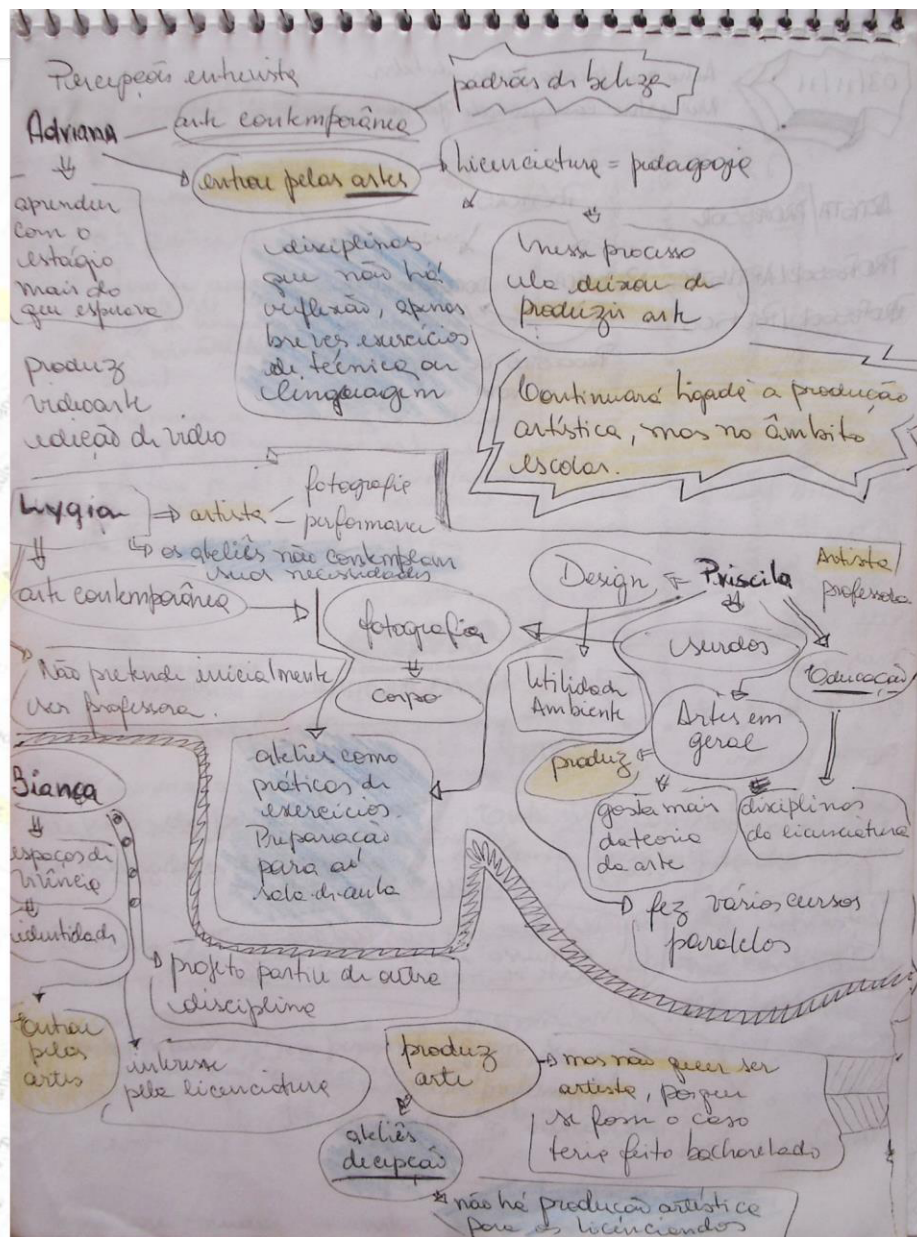 Percepções entrevista
Adriana
arte contemporânea
padrões de beleza
entrou pelas artes
Licenciatura = pedagogia
aprender
com o
estágio
mais do
que esperava
disciplinas
que não há
reflexão, apenas
breves exercícios
de técnica ou
linguagem
nesse processo
ela deixou de
produzir arte
produz
vídeoarte
edição de vídeo
Continuará ligada a produção
artística, mas no âmbito
escolar.
Lygia
artista
fotografia
performance
os ateliês não contemplam
suas necessidades
arte contemporânea
fotografia
corpo
Não pretende inicialmente
ser professora.
Design
Priscila
Artista/
professora
Utilidade
Ambiente
surdos
Educação
Artes em
geral
produz
gosta mais
da teoria
da arte
disciplinas
da licenciatura
fez vários cursos
paralelos
ateliês como
práticas de
exercícios.
Preparação
para a
sala de aula
Bianca
espaços de
vivência
identidade
projeto partiu de outra
disciplina
entrou
pelas
artes
interesse
pela licenciatura
produz
arte
mas não quer ser
artista, porque
se fosse o caso
teria feito bacharelado
ateliês
decepção
não há produção artística
para os licenciandos
03/11/11